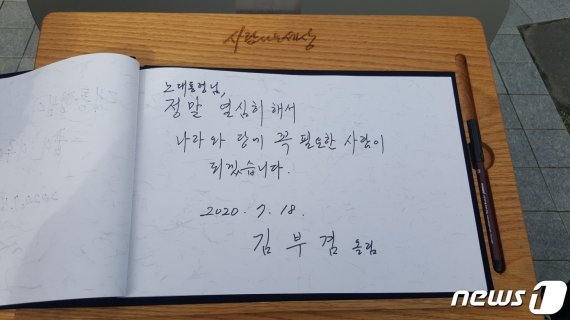 사람사는세상
노대통령님,
정말 열심히 해서
나라와 당에 꼭 필요한 사람이
되겠습니다.
2020. 7. 18.
김부겸 올림
news1